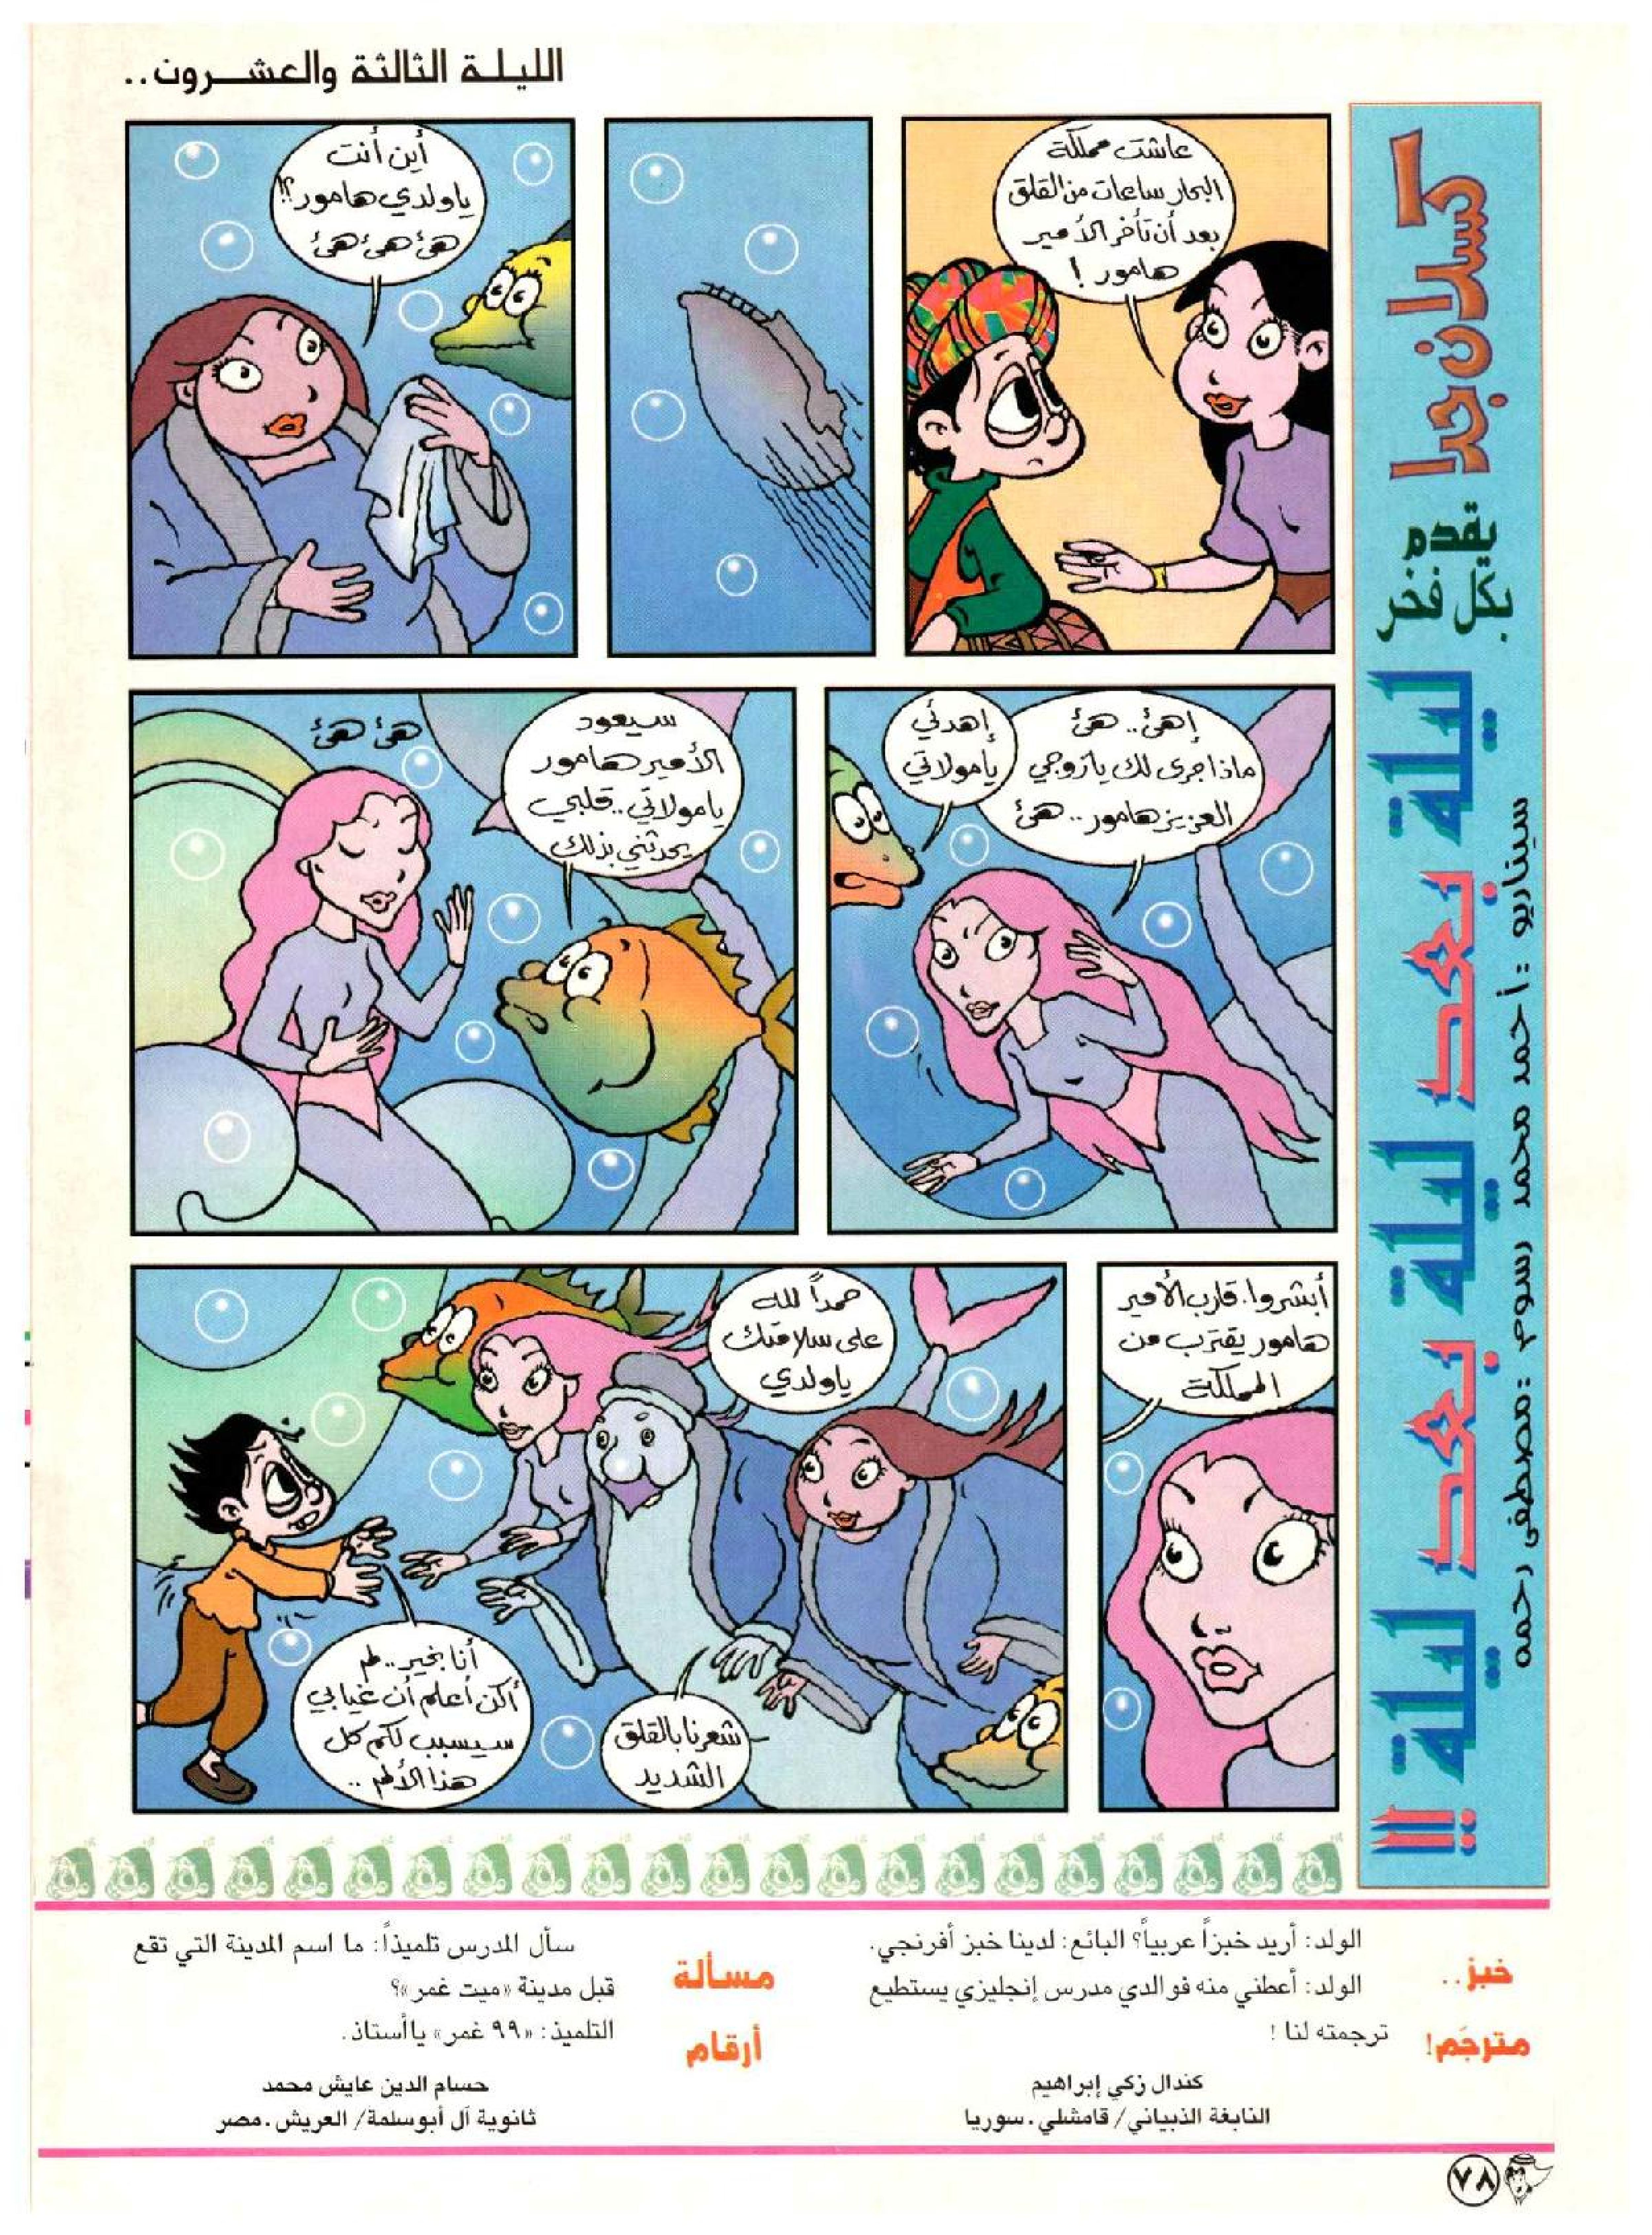 الليلة الثالثة والعشرون..
كسلان جدا
يقدم
بكل فخر
ليلة بعد ليلة بعد ليلة !!
سيناريو : أحمد محمد رسوم : مصطفى رحمه
عاشت مملكة
البحار ساعات من القلق
بعد أن تأخر الأمير
هامور !
أين أنت
ياولدي هامور؟!
هئ هئ هئ
إهئ.. هئ
ماذا جرى لك يازوجي
العزيز هامور.. هئ
إهدئي
يامولاتي
سيعود
الأمير هامور
يامولاتي.. قلبي
يحدثني بذلك
هئ هئ
أبشروا. قارب الأمير
هامور يقترب من
المملكة
حمداً لله
على سلامتك
ياولدي
شعرنا بالقلق
الشديد
أنا بخير.. لم
أكن أعلم أن غيابي
سيسبب لكم كل
هذا الألم ..
خبز..
مترجَم!
الولد: أريد خبزاً عربياً؟ البائع: لدينا خبز أفرنجي.
الولد: أعطني منه فوالدي مدرس إنجليزي يستطيع
ترجمته لنا !
كندال زكي إبراهيم
النابغة الذبياني/ قامشلي . سوريا
مسألة
أرقام
سأل المدرس تلميذاً: ما اسم المدينة التي تقع
قبل مدينة «ميت غمر»؟
التلميذ: «٩٩ غمر» ياأستاذ.
حسام الدين عايش محمد
ثانوية آل أبوسلمة/ العريش . مصر
٧٨